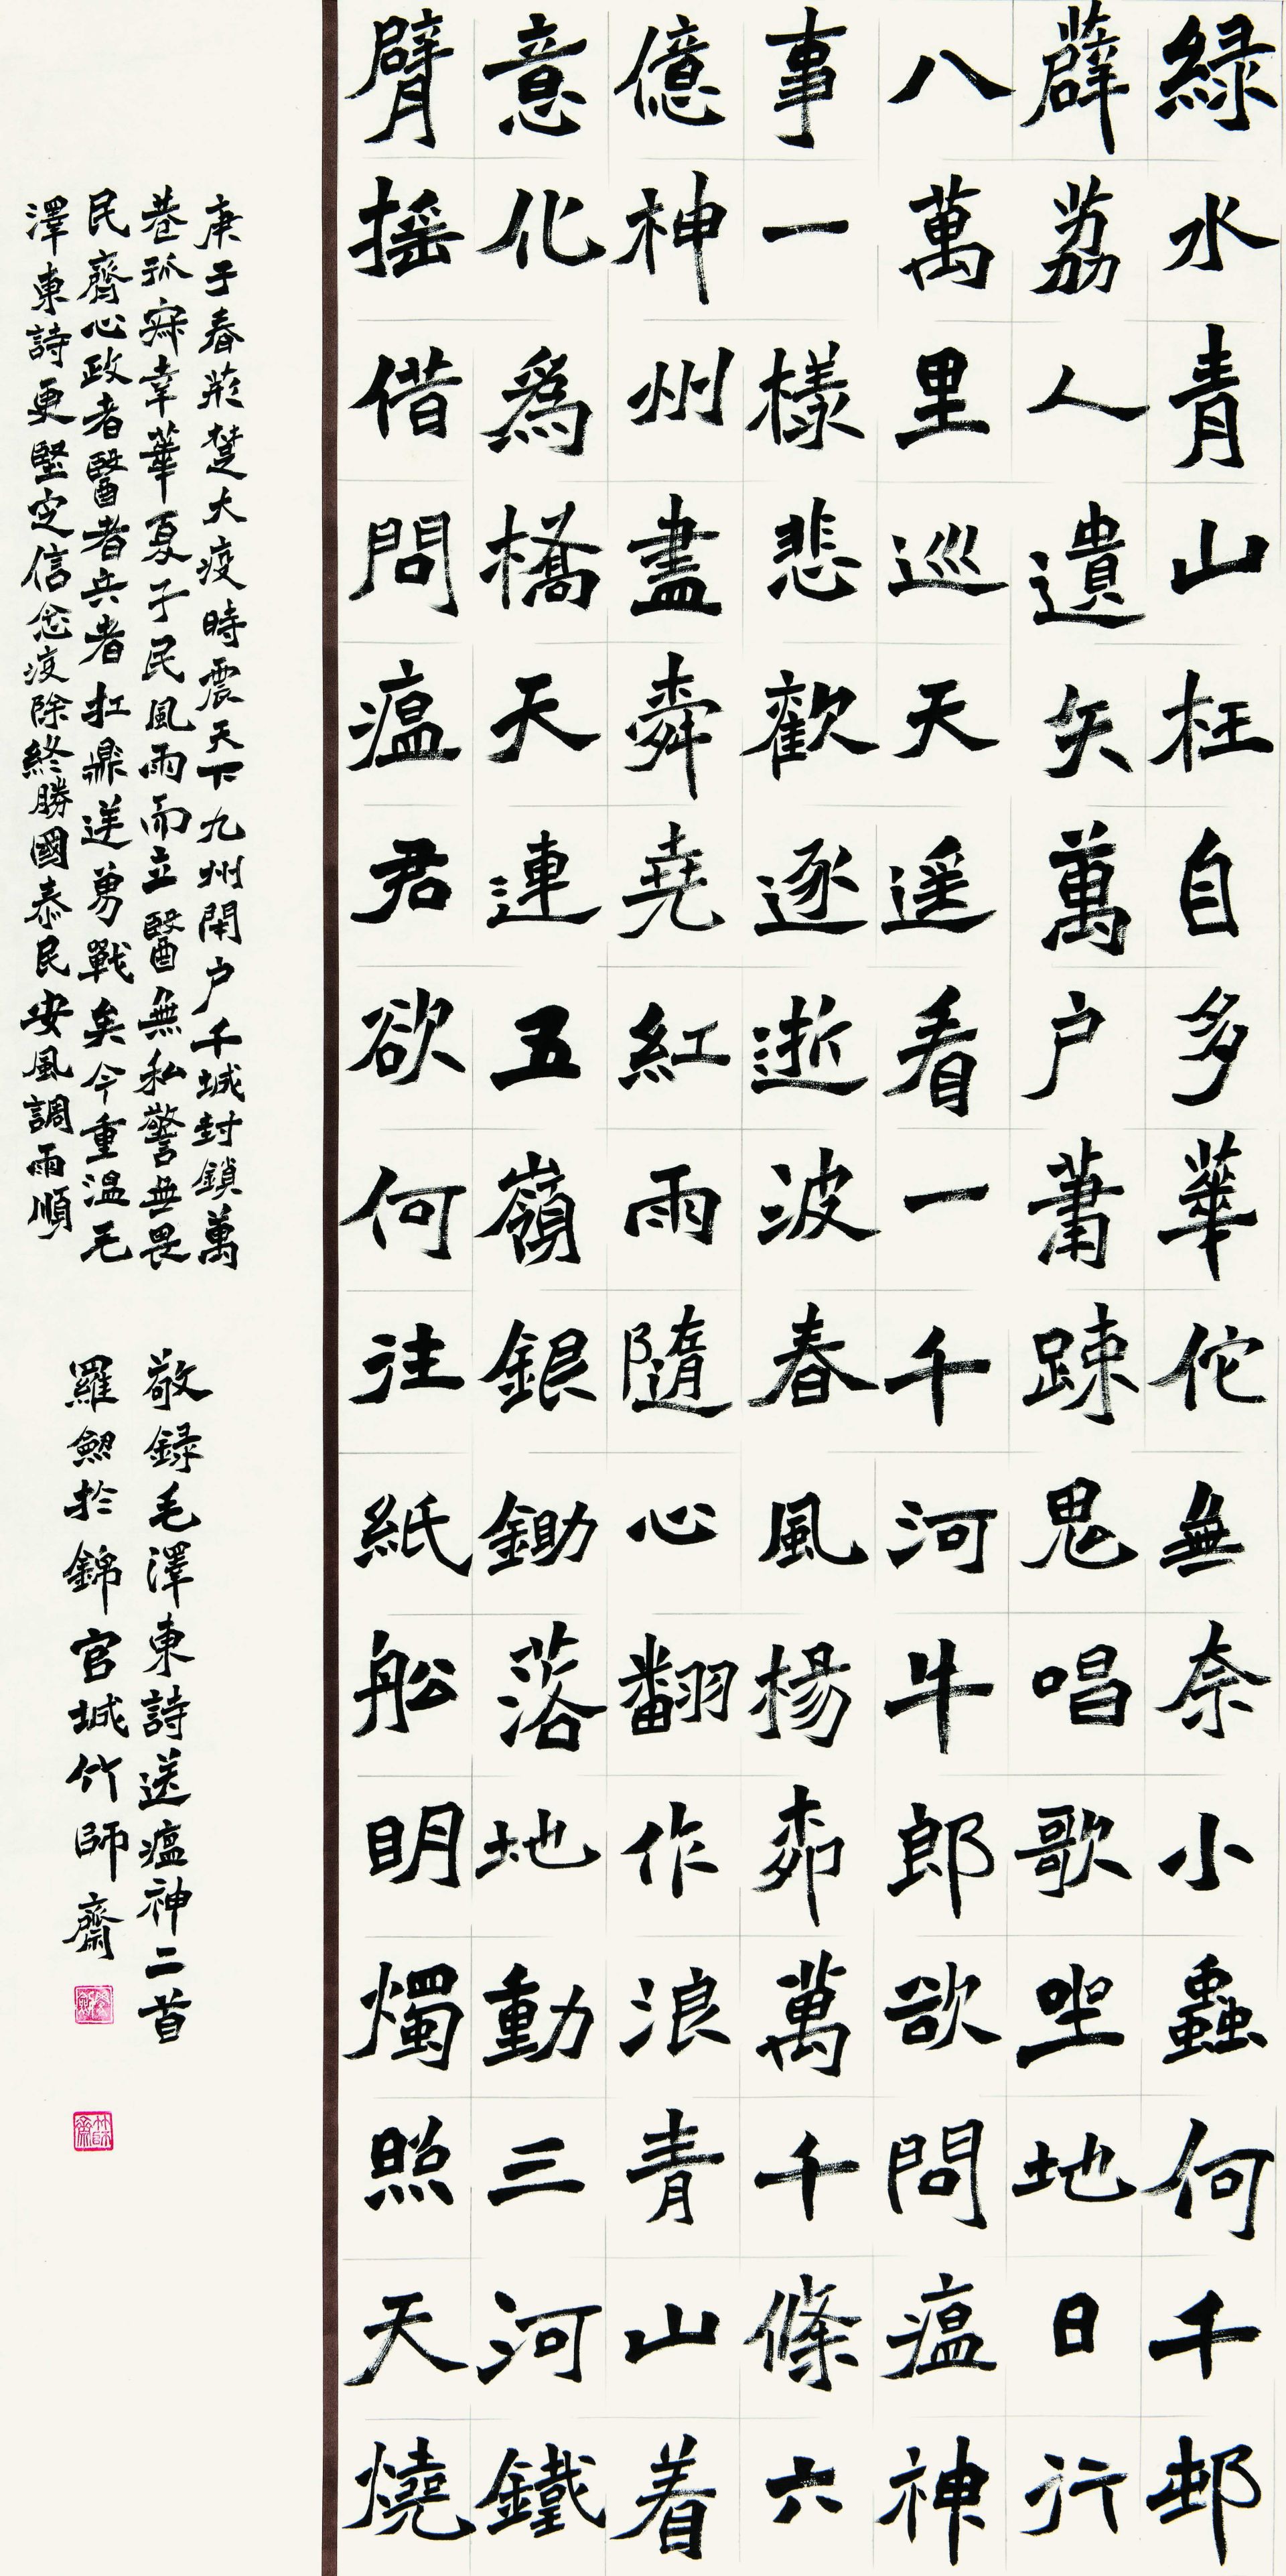 綠水青山枉自多華佗無奈小蟲何千邨
薜荔人遺矢萬户蕭踈鬼唱歌坐地日行
八萬里巡天遥看一千河牛郎欲問瘟神
事一樣悲歡逐逝波春風揚桺萬千條六
億神州盡舜堯紅雨隨心翻作浪青山着
意化爲橋天連五嶺銀鋤落地動三河鐵
臂摇借問瘟君欲何往紙船明燭照天燒
庚子春荊楚大疫時震天下九州閉户千城封鎖萬
巷孤寂幸華夏子民風雨而立醫無私警無畏
民齊心政者醫者兵者扛鼎逆勇戰矣今重温毛
澤東詩更堅定信念疫除終勝國泰民安風調雨順
敬録毛澤東詩送瘟神二首
羅劒於錦官城竹師齋